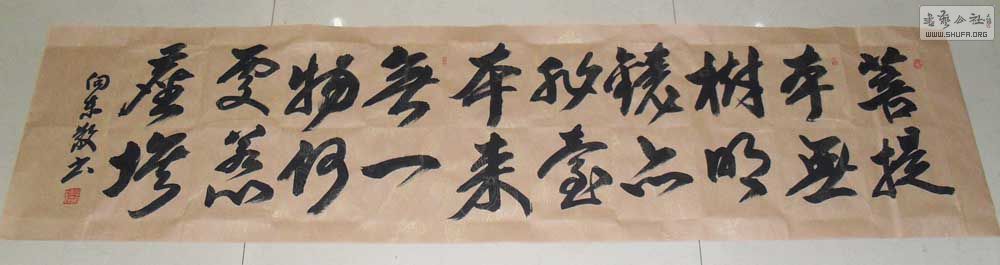 菩提
本無
樹明
鏡亦
非臺
本来
無一
物何
處惹
塵埃
向东敬书
书艺公社
WWW.SHUFA.ORG